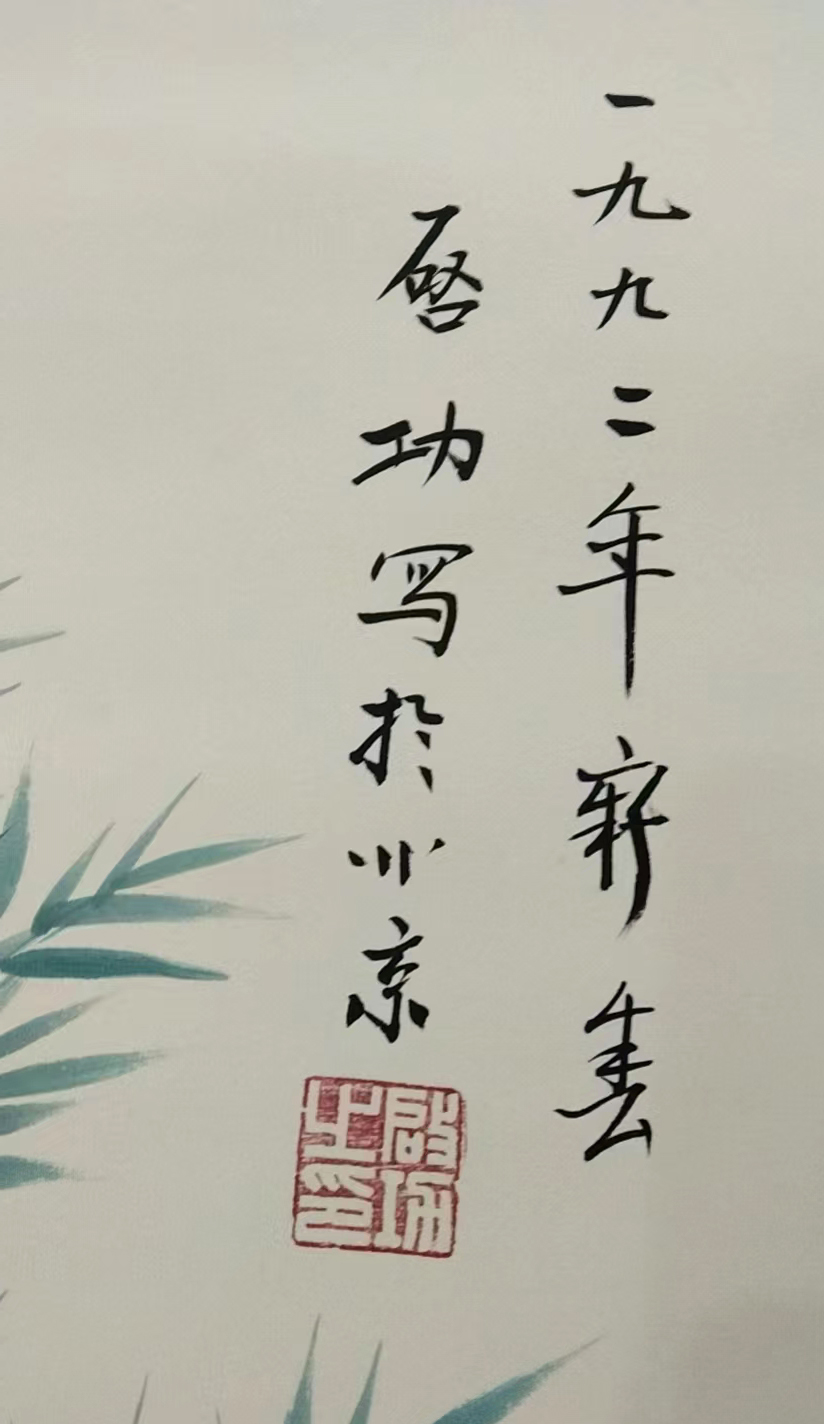 一九九二年新春
啓功写於北京
啟功之印